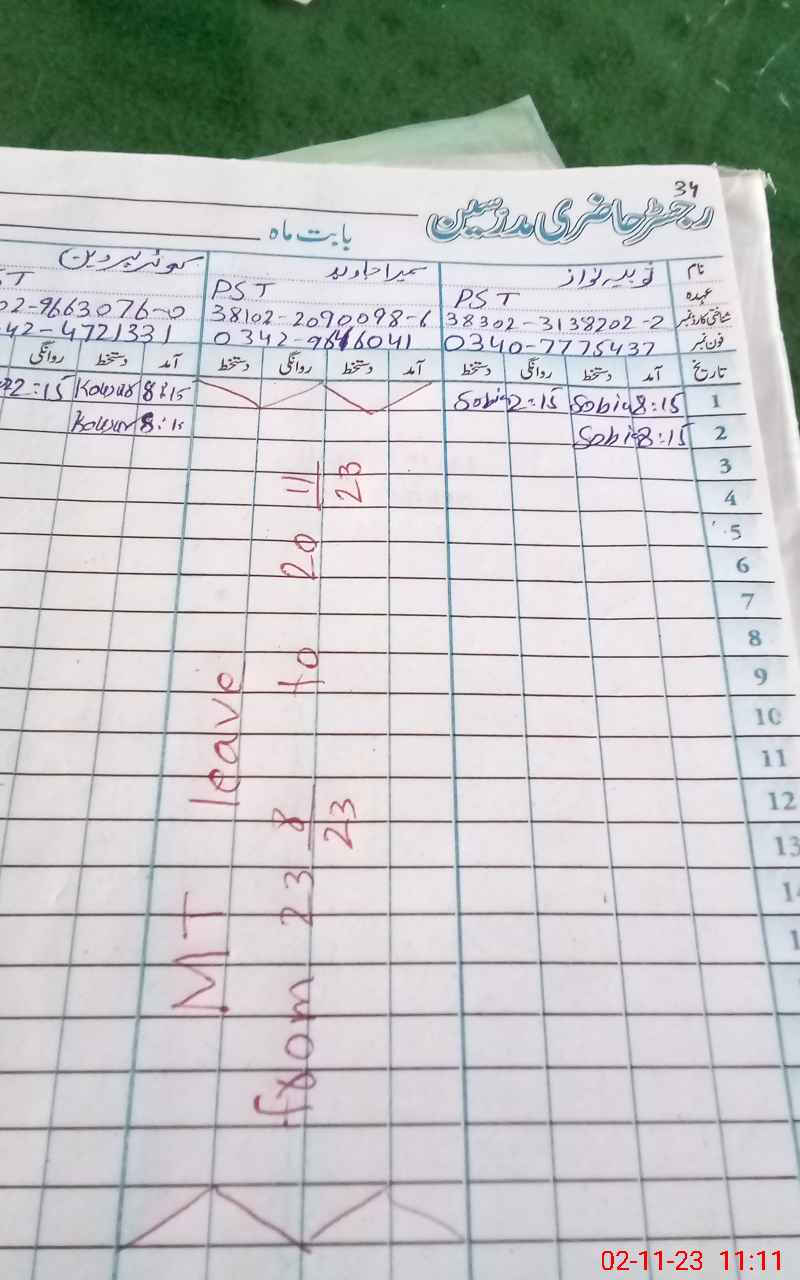 34
رجسٹر حاضری مدرسین
بابت ماہ
نام ثوبیہ نواز سمیرا جاوید کوثر پروین
عہدہ PST PST ST
شناختی کارڈ نمبر 38302-3138202-2 38102-2090098-6 02-9663076-0
فون نمبر 0340-7775437 0342-9646041 42-4721331
تاریخ آمد دستخط روانگی دستخط آمد دستخط روانگی دستخط آمد دستخط روانگی
1 8:15 Sobia 2:15 Sobia 8:15 Kousar 2:15
2 8:15 Sobia 8:15 Kousar
3
4
5
6
7
8
9
10
11
12
13
MT leave
from 23 8/23 to 20 11/23
02-11-23 11:11